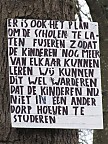 ER IS OOK HET PLAN
OM DE SCHOLEN TE LA-
TEN FUSEREN ZODAT
DE KINDEREN NOG MEER
VAN ELKAAR KUNNEN
LEREN WIJ KUNNEN
DIT WEL WAARDEREN
DAT DE KINDEREN NU
NIET IN EEN ANDER
DORP HOEVEN TE
STUDEREN